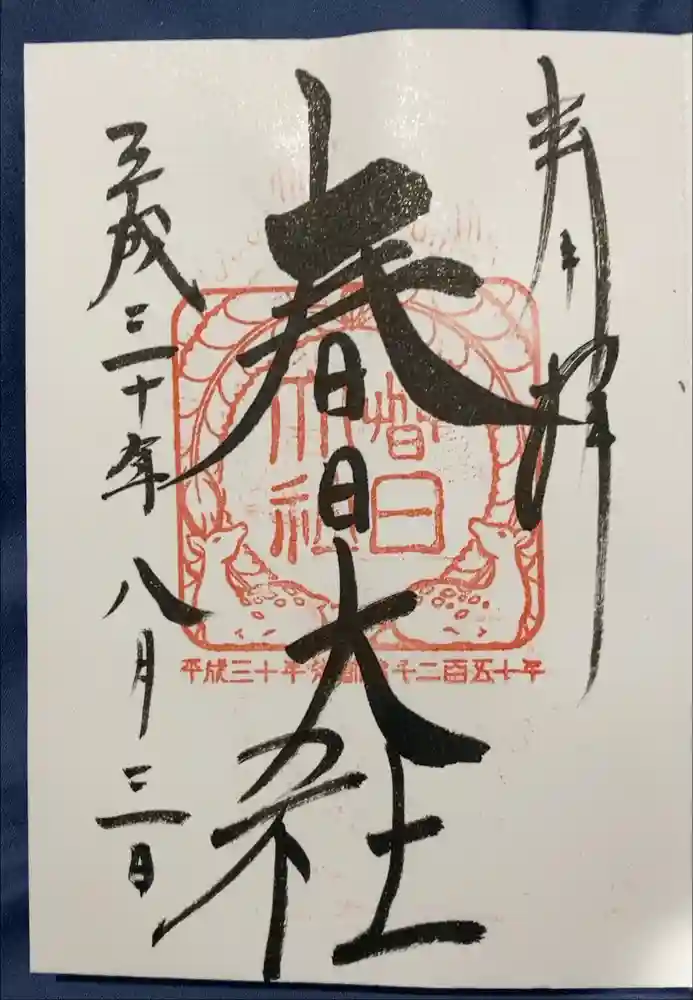 奉拝
春日大社
平成三十年八月三日
春日
大社
平成三十年 千二百五十年